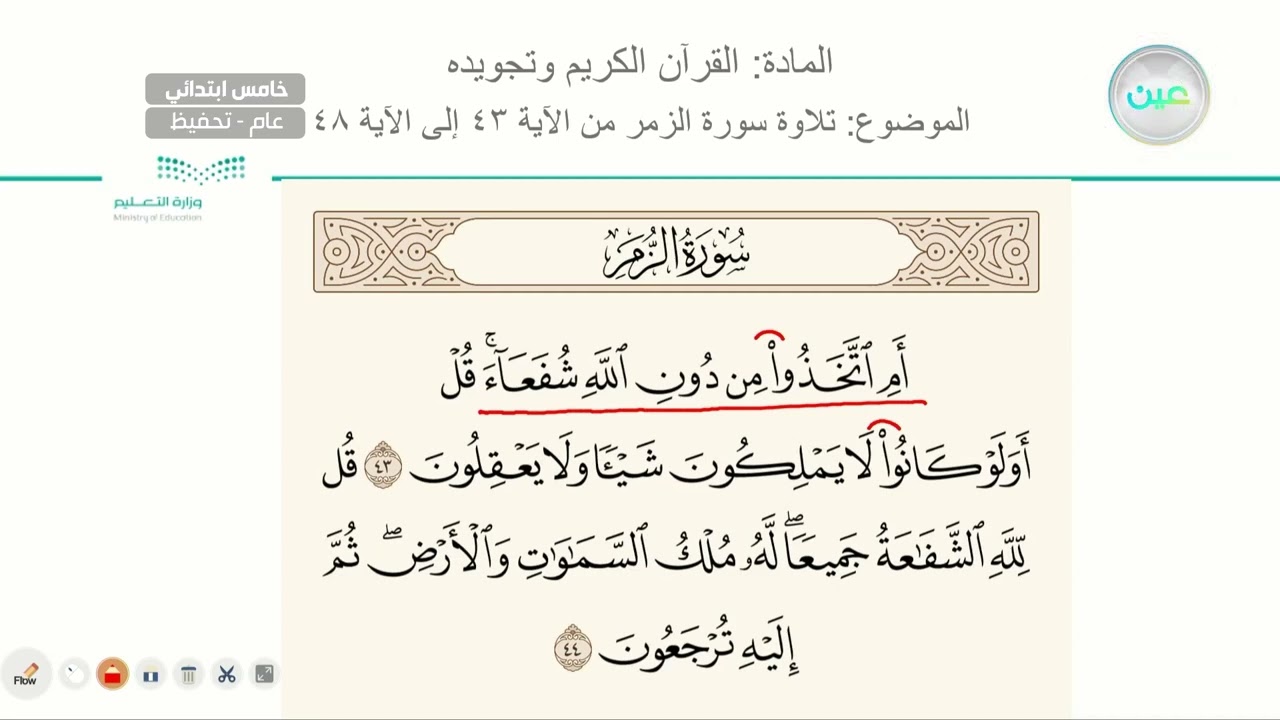 المادة: القرآن الكريم وتجويده
خامس ابتدائي
عام - تحفيظ
الموضوع: تلاوة سورة الزمر من الآية ٤٣ إلى الآية ٤٨
عين
وزارة التعليم
Ministry of Education
سُورَةُ الزُّمَرِ
أَمِ ٱتَّخَذُوا۟ مِن دُونِ ٱللَّهِ شُفَعَآءَۚ قُلۡ
أَوَلَوۡ كَانُوا۟ لَا يَمۡلِكُونَ شَيۡـًٔا وَلَا يَعۡقِلُونَ ٤٣ قُل
لِّلَّهِ ٱلشَّفَٰعَةُ جَمِيعٗاۖ لَّهُۥ مُلۡكُ ٱلسَّمَٰوَٰتِ وَٱلۡأَرۡضِۖ ثُمَّ
إِلَيۡهِ تُرۡجَعُونَ ٤٤
Flow